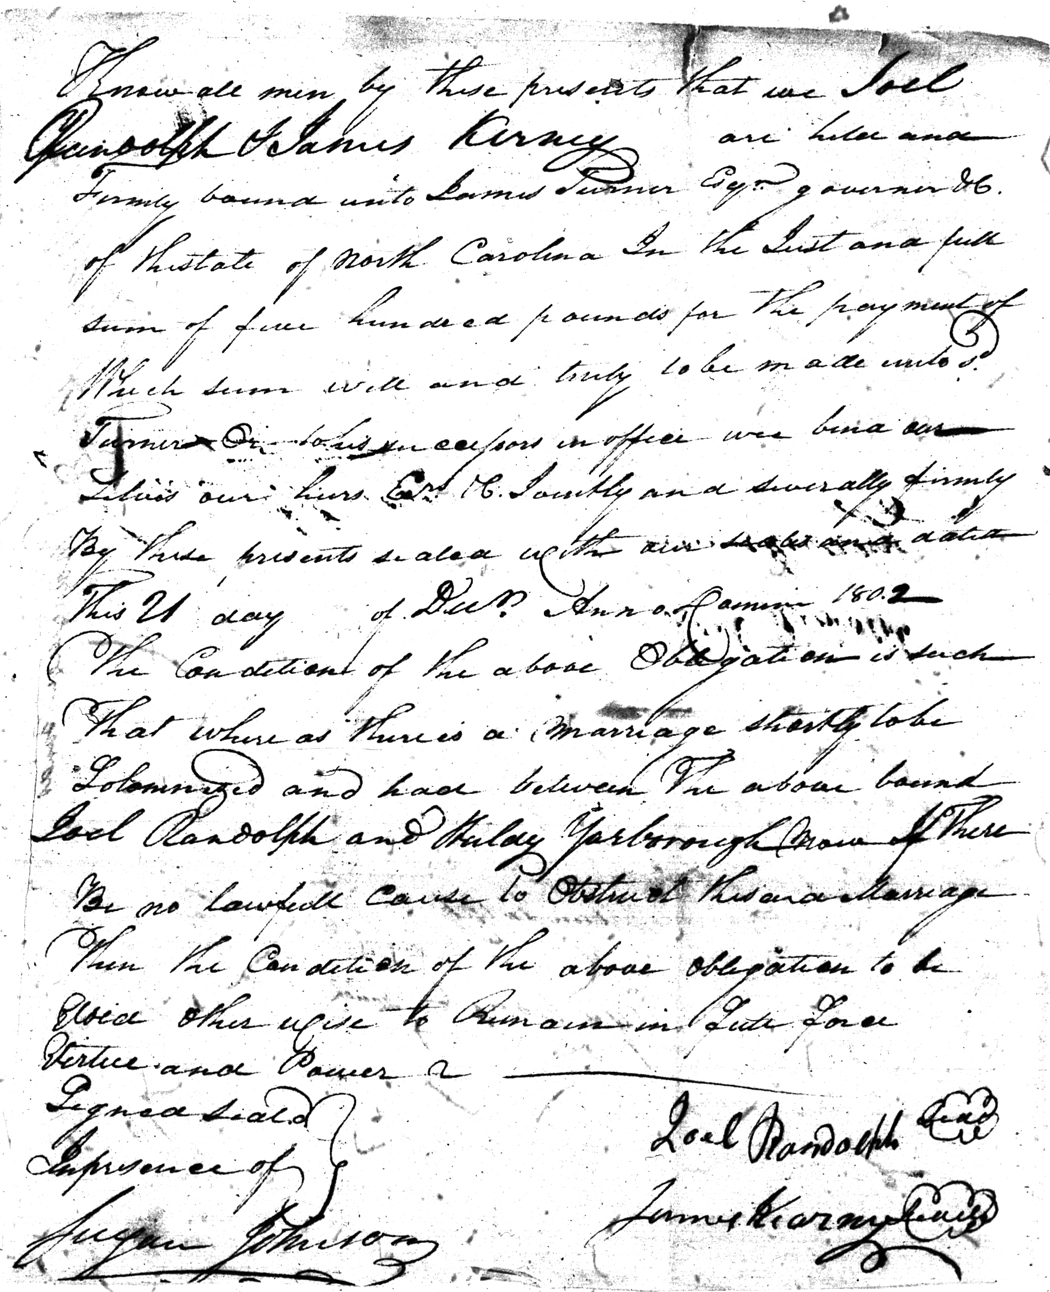 Know all men by these presents that we Joel
Randolph & James Kerney are held and
Firmly bound unto James Turner Esqr governer &C.
of the state of North Carolina In the Just and full
sum of five hundred pounds for the payment of
Which sum will and truly to be made unto sd
Turner Or to his successors in office wee bind our
Selvis our heirs Exrs &C. Jointly and severally firmly
By these presents sealed with our seals and dated
This 21 day of Decr. Anno Domini 1802
The Condition of the above Obligation is such
That where as there is a marriage shortly to be
Solomnized and had between The above bound
Joel Randolph and Huldy Yarborough Now If There
Be no lawfull Cause to Obstruct the said Marriage
Then the Condition of the above obligation to be
Void other wise to Remain in full force
Virtue and Power
Signed seald
In prisence of
Joel Randolph Seal
James Kearney Seal
Johnson